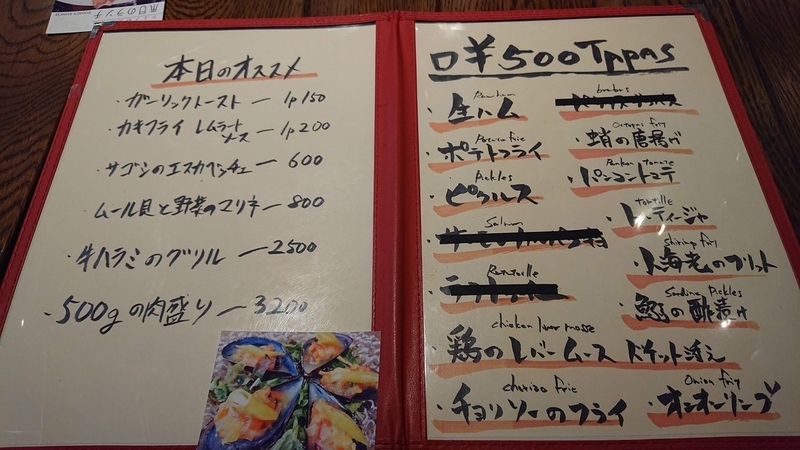 本日のオススメ
・ガーリックトースト ー 1p150
・カキフライ レムラード
ソース ー 1p200
・サゴシのエスカベッシュ ー 600
・ムール貝と野菜のマリネ ー 800
・牛ハラミのグリル ー 2500
・500gの肉盛り ー 3200
¥500Tapas
・生ハム
Potato frie
・ポテトフライ
Pickles
・ピクルス
Salmon
Ratatuille
chicken liver mosse
・鶏のレバームース バケット添え
churizo frie
・チョリソーのフライ
Octopus fry
・蛸の唐揚げ
・パンコントマテ
tortille
・トルティージャ
shrimp fry
・小海老のフリット
Sardine Pickles
・鰯の酢漬け
Onion fry
・オニオンリング